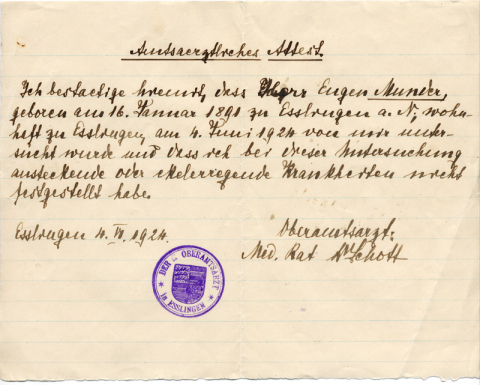 Amtsaerztliches Attest.
Ich bestaetige hiermit, dass Herr Eugen Munder,
geboren am 16. Januar 1891 zu Esslingen a. N., wohn-
haft zu Esslingen, am 4. Juni 1924 von mir unter-
sucht wurde und dass ich bei dieser Untersuchung
ansteckende oder ekelerregende Krankheiten nicht
festgestellt habe.
Esslingen 4. VI. 1924.
Oberamtsarzt:
Med. Rat Dr Schott
DER OBERAMTSARZT
IN ESSLINGEN